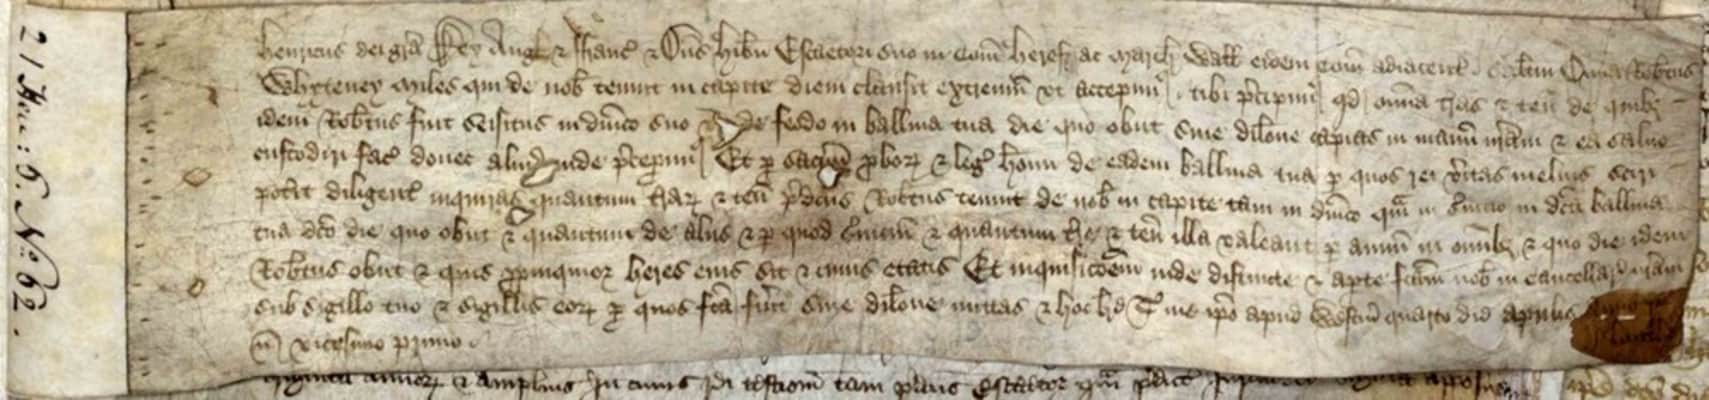 21 Hen: 6. No: 62.
Henricus dei gra Rex Angl & Franc & Dns Hibn Escaetori suo in Com Heref ac March Wall eidem Com adiacent saltm Quia Robtus
Whyteney Miles qui de nob tenuit in capite diem clausit extremu vt accepim tibi pcipim qd omia tras & ten de quibz
idem Robtus fuit seisitus in dnico suo de feodo in balliua tua die quo obijt sine dilone capias in manu nram & ea saluo
custodiri fac donec aliud inde pceperim Et p sacrm pbor & leg hoim de eadem balliua tua p quos rei vitas melius sciri
potit diligent inquiras quantum trar & ten pdcus Robtus tenuit de nob in capite tam in dnico qm in suicio in dca balliua
tua dco die quo obijt & quantum de alijs & p quod suiciu & quantum tre & ten illa valeant p annu in omibz & quo die idem
Robtus obijt & quis ppinquior heres eius sit & cuius etatis Et inquisicoem inde distincte & apte fcam nob in cancellar nram
sub sigillo tuo & sigillis eor p quos fca fuit sine dilone mittas & hoc bre T me ipo apud Westm quarto die Aprilis Anno
n vicesimo primo
annor & amplius In cuius rei testimoniu tam psens Escaetor qm pdict